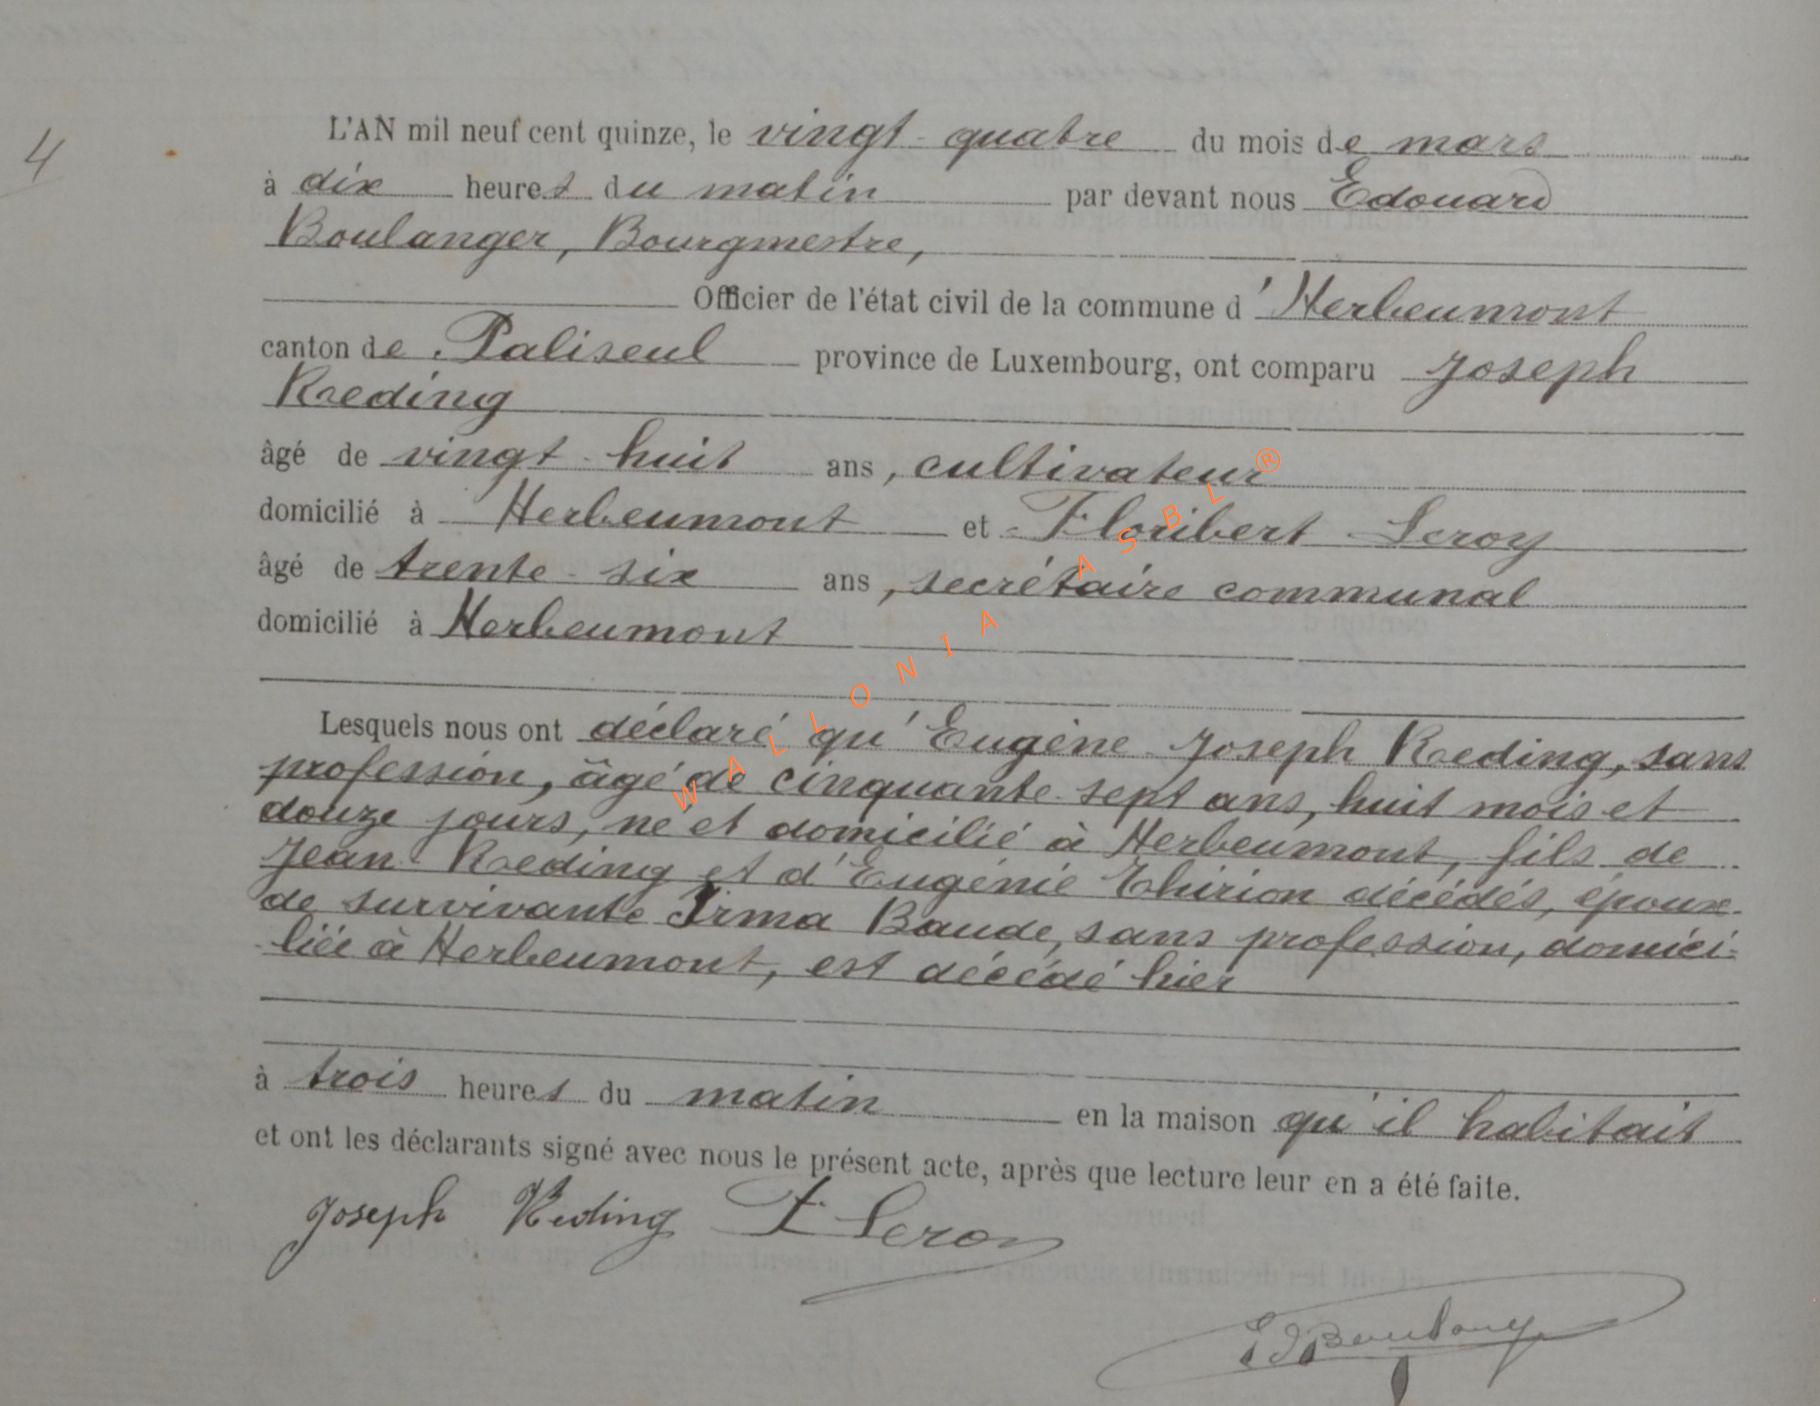 4
L'AN mil neuf cent quinze, le vingt-quatre du mois de mars
à dix heures du matin par devant nous Edouard
Boulanger, Bourgmestre,
Officier de l'état civil de la commune d'Herbeumont
canton de Paliseul province de Luxembourg, ont comparu Joseph
Reding
âgé de vingt-huit ans, cultivateur
domicilié à Herbeumont et Floribert Leroy
âgé de trente-six ans, secrétaire communal
domicilié à Herbeumont
Lesquels nous ont déclaré qu'Eugène Joseph Reding, sans
profession, âgé de cinquante-sept ans, huit mois et
douze jours, né et domicilié à Herbeumont, fils de
Jean Reding et d'Eugénie Thirion décédés, époux
de survivante Irma Baude, sans profession, domici-
liée à Herbeumont, est décédé hier
à trois heures du matin en la maison qu'il habitait
et ont les déclarants signé avec nous le présent acte, après que lecture leur en a été faite.
Joseph Reding F Leroy
Ed Boulanger
WALLONIA ASBL ®